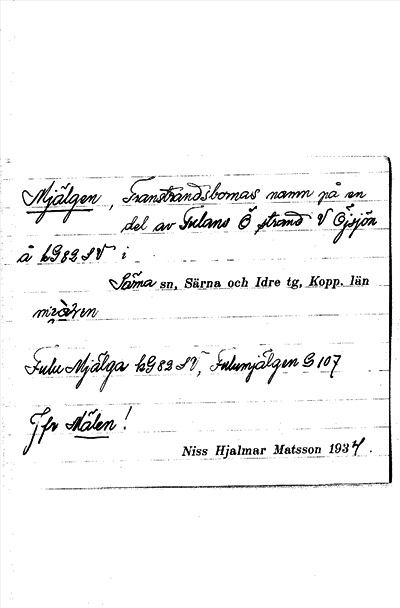 Mjälgen, Transtrandsbornas namn på en
del av Fulans Ö strand V Öjsjön
å kG82SV i
Särna sn, Särna och Idre tg, Kopp. län
Fulu Mjälga kG82 SV, Fulumjälgen G 107
Jfr Mälen!
Niss Hjalmar Matsson 1934.